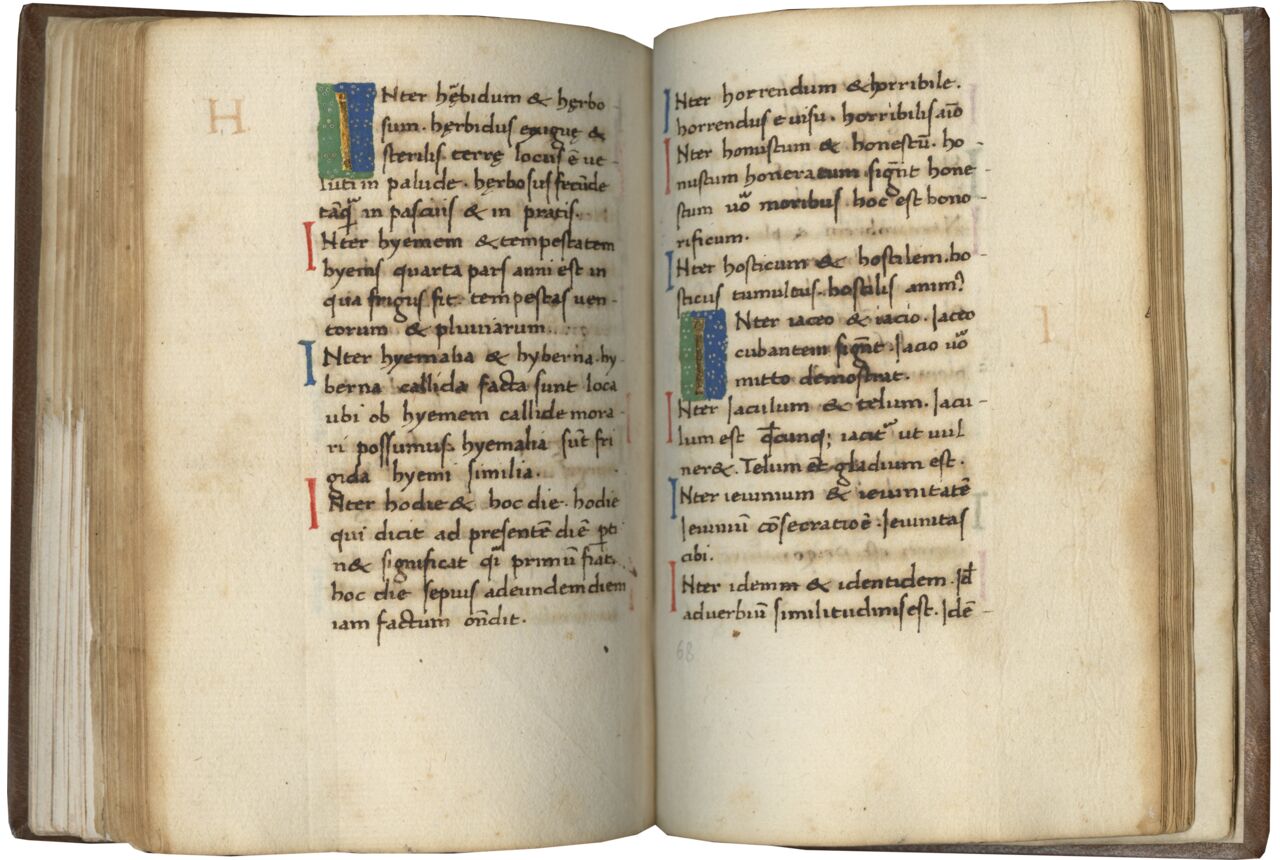 H
INter hębidum & hęrbo
sum. hęrbidus exiguę &
sterilis terrę locus ē ue-
luti in palude. hęrbosus fecūde
tāq̃ in pascuis & in pratis.
INter hyemem & tempestatem
hyems quarta pars anni est in
qua frigus fit. tempestas uen-
torum & pluuiarum.
INter hyemalia & hyberna. hy
berna callida facta sunt loca
ubi ob hyemem callide mora
ri possumus. hyemalia sūt fri
gida hyemi similia.
INter hodie & hoc die. hodie
qui dicit ad presentē diē ꝑti
n& & significat qi primū fiat.
hoc die sepius ad eundem diem
iam factum ōndit.
INter horrendum & horribile.
horrendus e uisu. horribilis aīo
INter honustum & honestū. ho-
nustum honeratum signt hone-
stum uō moribus hoc est hono-
rificum.
INter hosticum & hostilem. ho-
sticus tumultus. hostilis anim?
I
INter iaceo & iacio. Iaceo
cubantem signt. Iacio uō
mitto demostrat.
INter Iaculum & telum. Iacu-
lum est qđcunq; iacit ut uul
ner&. Telum et gladium est.
INter ieiunium & ieiunitatē
Ieiuniū cōsecratio ē. Ieiunitas
cibi.
INter idem & identidem. Id
aduerbiū similitudinis est. Idē-
68